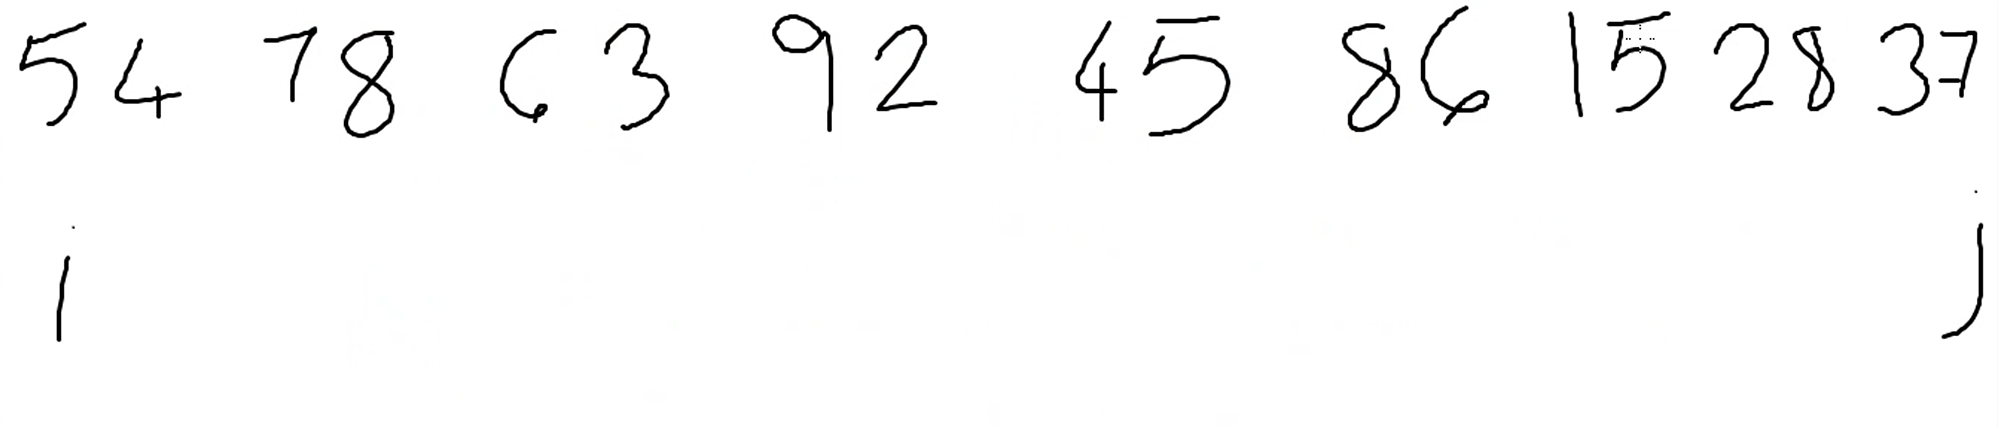 54 78 63 92 45 86 15 28 37
i j